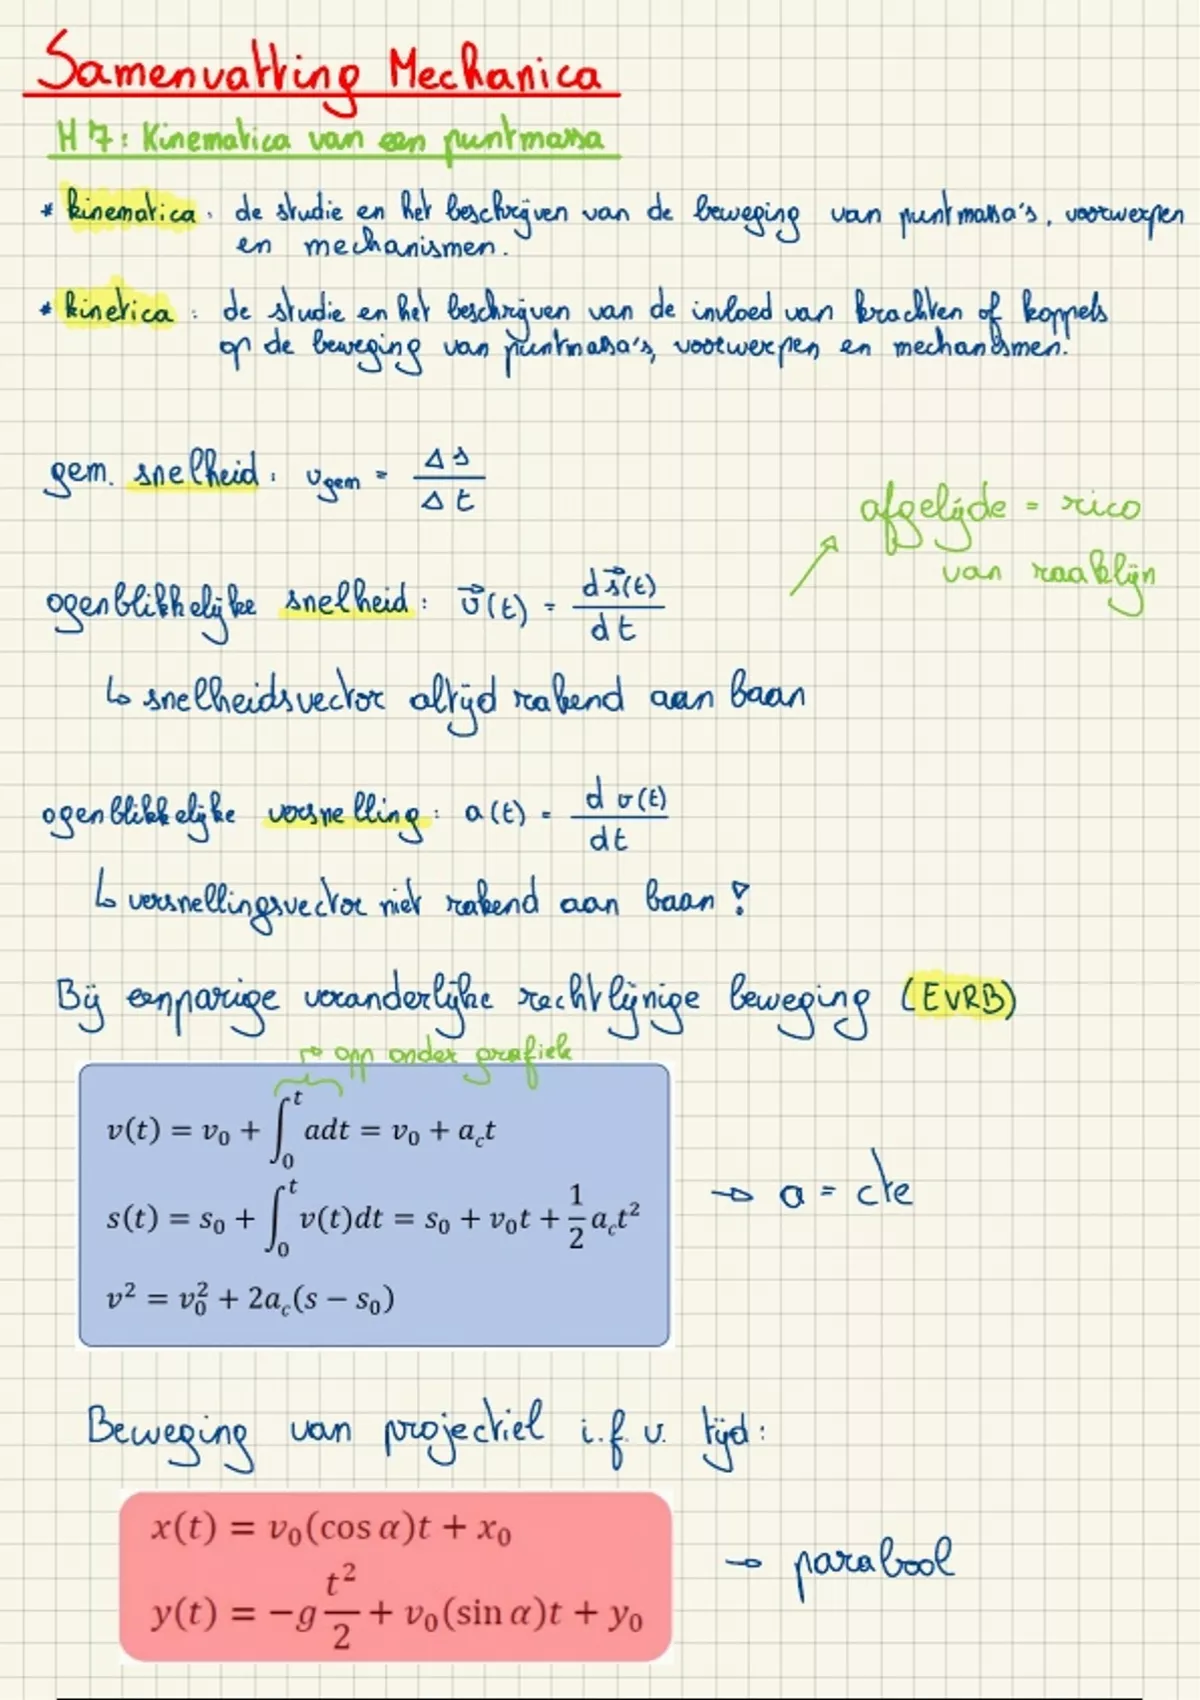 Samenvatting Mechanica
H7: Kinematica van een puntmassa
* kinematica: de studie en het beschrijven van de beweging van puntmassa's, voorwerpen
en mechanismen.
* kinetica: de studie en het beschrijven van de invloed van krachten of koppels
op de beweging van puntmassa's, voorwerpen en mechanismen.
gem. snelheid: v_gem = Δs/Δt
afgelijde = rico
van raaklijn
ogenblikkelijke snelheid: v⃗(t) = ds⃗(t)/dt
↳ snelheidsvector altijd rakend aan baan
ogenblikkelijke versnelling: a(t) = dv(t)/dt
↳ versnellingsvector niet rakend aan baan !
Bij eenparige veranderlijke rechtlijnige beweging (EVRB)
→ opp onder grafiek
v(t) = v₀ + ∫₀ᵗ adt = v₀ + a_c t
s(t) = s₀ + ∫₀ᵗ v(t)dt = s₀ + v₀t + 1/2 a_c t²
→ a = cte
v² = v₀² + 2a_c(s − s₀)
Beweging van projectiel i.f.v. tijd:
x(t) = v₀(cos α)t + x₀
→ parabool
y(t) = −g t²/2 + v₀(sin α)t + y₀